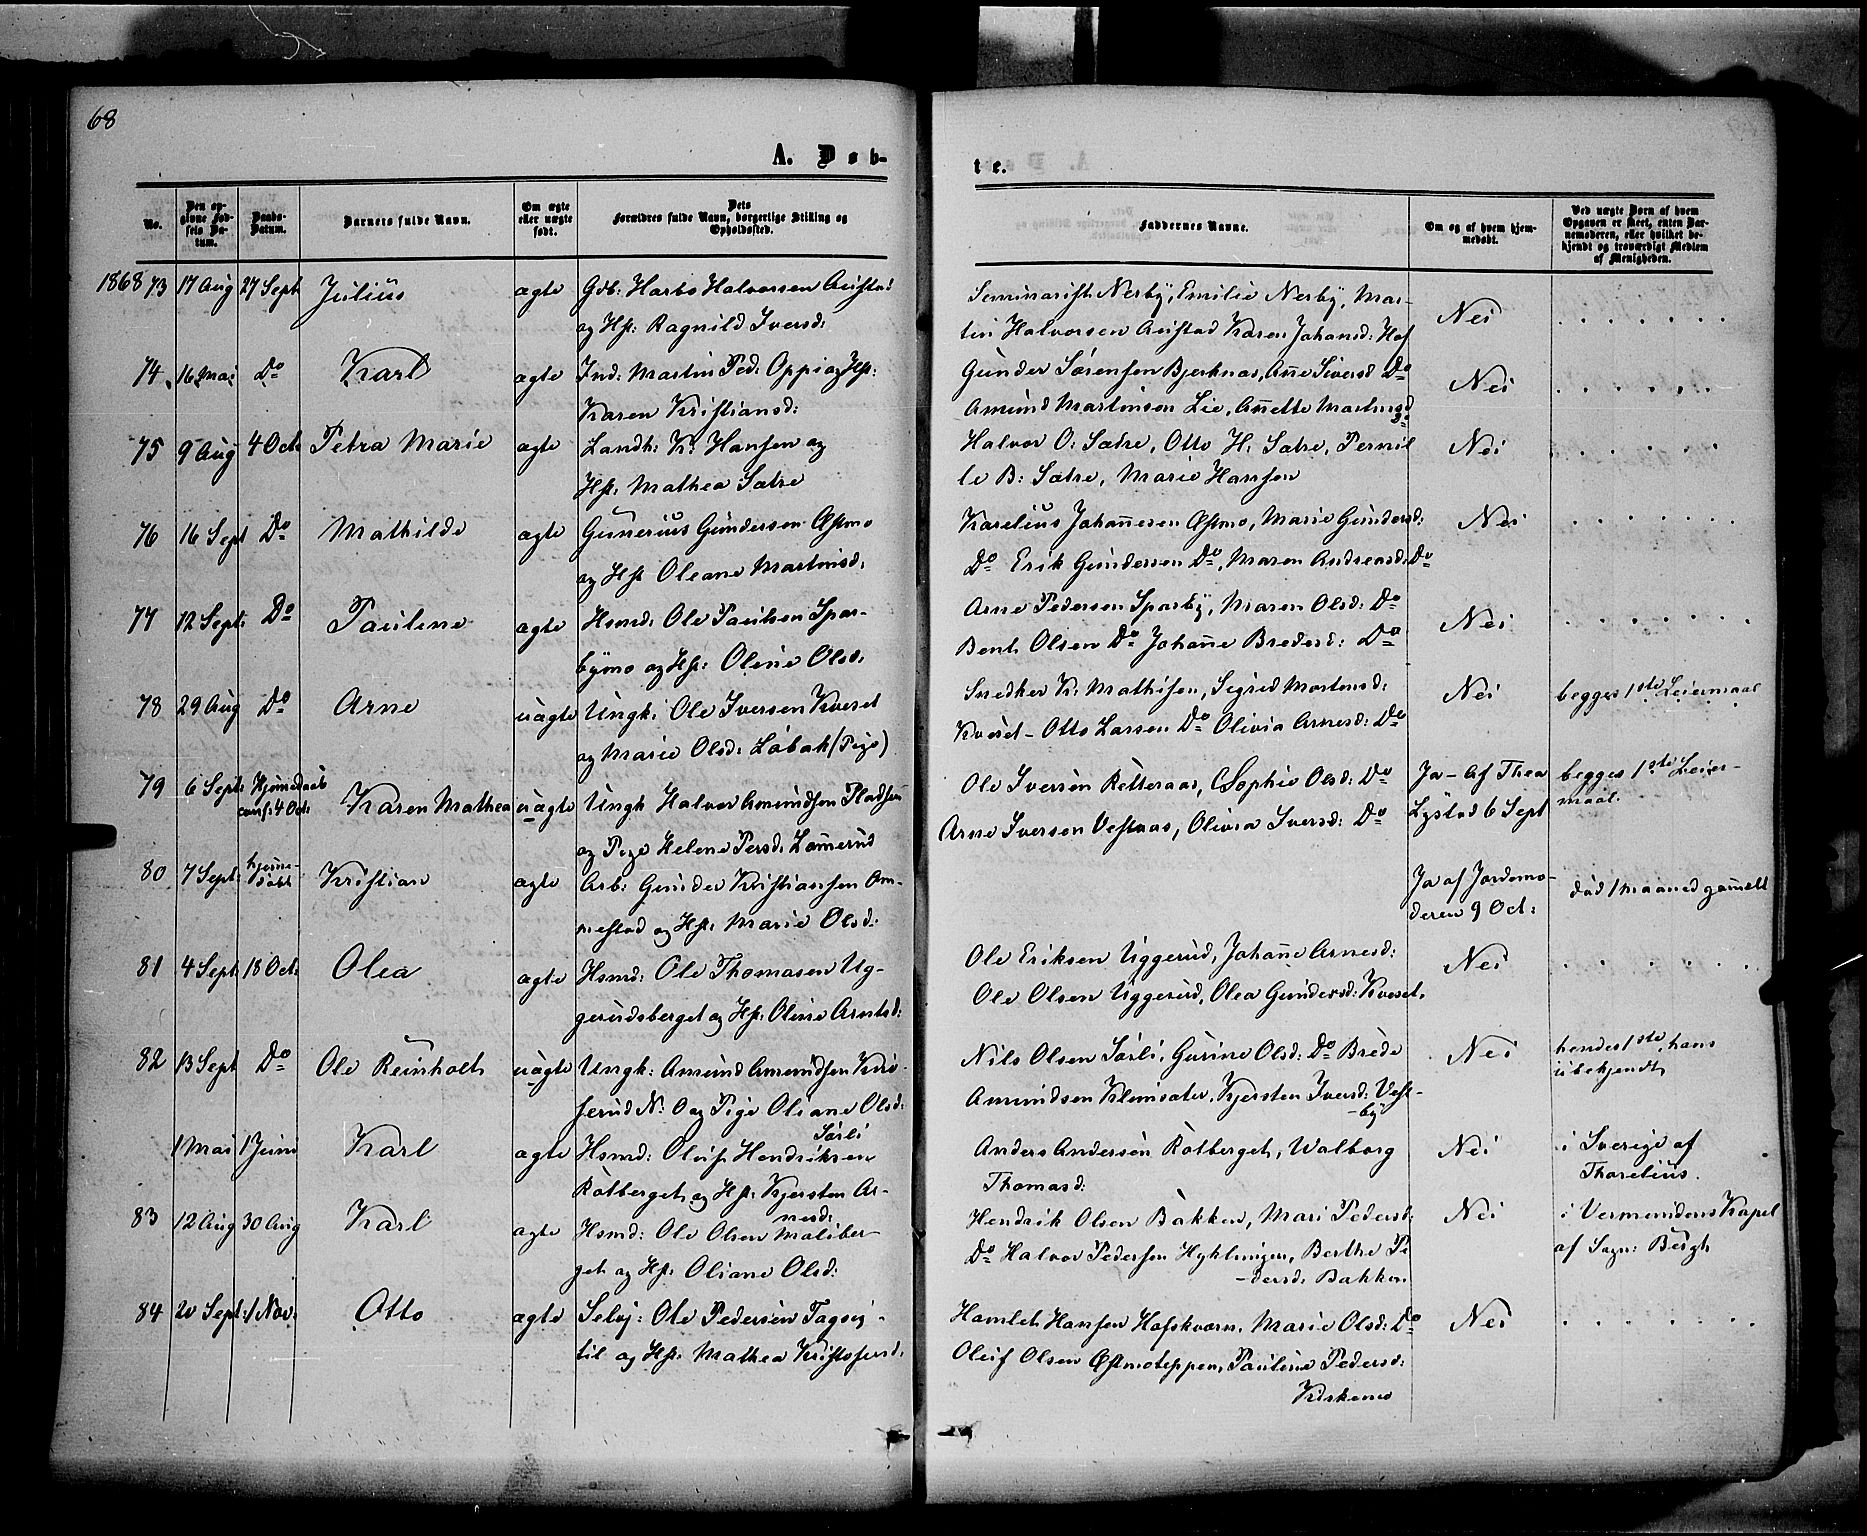 68
A. Døb-
te.
No.
Den op-
givne Fød-
sels Da-
tum.
Daabs-
Datum.
Barnets fulde Navn.
Om ægte
eller uægte
født.
Dets
Forældres fulde Navn, borgerlige Stilling og
Opholdssted.
Faddernes Navne.
Om og af hvem hjem-
medøbt.
Ved uægte Børn af hvem
Opgaven er skeet, enten Bar-
nemoderen, eller hvilket be-
kjendt og troværdigt Medlem
af Menigheden.
1868 73 17 Aug 27 Sept Julius ægte Gdb: Harbo Halvorsen Austad
og Hst: Ragnild Iversd:
Seminarist Nerby, Emilie Nerby, Mar-
tin Halvorsen Austad Karen Johansd: Hof
Nei
74 16 Mai Do Karl ægte Ind: Martin Ped: Oppi og Hst:
Karen Kristiansd:
Gunder Sørensen Bjerknæs, Ane Siversd Do
Amund Martinsen Lie, Anette Martinsd Do
Nei
75 9 Aug 4 Oct Petra Marie ægte Landh: K: Hansen og
Hst: Mathea Sætre
Halvor O: Sætre, Otto H: Sætre, Pernil
le B: Sætre, Marie Hansen
Nei
76 16 Sept Do Mathilde ægte Gunerius Gundersen Østmo
og Hst Oleane Martinsd:
Karelius Johannesen Østmo, Marie Gundersd:
Do Erik Gundersen Do, Maren Andreasd: Do
Nei
77 12 Sept: Do Pauline ægte Hsmd: Ole Paulsen Spar-
bymo og Hst: Oline Olsd:
Arne Pedersen Sparby, Maren Olsd: Do
Bent Olsen Do Johanne Bredesd: Do
Nei
78 29 Aug Do Arne uægte Ungk: Ole Iversen Kveset
og Marie Olsd: Løbak (Pige)
Snedker K: Mathisen, Sigrid Mortensd:
Kveset- Otto Larsen Do Olivia Arnesd: Do
Nei
begges 1ste Leiermaal
79 6 Sept: Hjemdaab
conf: 4 Oct: Karen Mathea uægte Ungk Halvor Amundsen Pladsen
og Pige Helene Persd: Lømerud
Ole Iversen Retteraas, Sophie Olsd: Do
Arne Iversen Vestaas, Olivia Iversd: Do
Ja- af Thea
Lystad 6 Sept
begges 1ste Leier-
maal.
80 7 Sept: hjemme-
døbt Kristian ægte Arb: Gunder Kristiansen Om-
mestad og Hst: Marie Olsd:
Ja af Jordemo-
deren 9 Oct:
død 1 maaned gammelt
81 4 Sept 18 Oct: Olea ægte Hsmd: Ole Thomasen Ug-
gerudsberget og Hst: Oline Arntsd:
Ole Eriksen Uggerud, Johanne Arnesd:
Ole Olsen Uggerud, Olea Gundersd: Kveset.
Nei
82 13 Sept Do Ole Reinholt uægte Ungk: Amund Amundsen
serud N: O og Pige Oliane Olsd:
Sørli
Nils Olsen Sørli, Gurine Olsd: Do Brede
Amundsen Klemsæter, Kjersten Iversd: Vest-
-by
Nei
hendes 1ste, hans
ubekjendt
1 Mai 1 Juni Karl ægte Hsmd: Oluf Hendriksen
Rotberget og Hst: Kjersten Ar-
nesd:
Anders Andersen Rotberget, Walborg
Thomasd:
Nei
i Sverige af
Thorelius.
83 12 Aug 30 Aug Karl ægte Hsmd: Ole Olsen Moliber-
get og Hst: Oliane Olsd:
Hendrik Olsen Bakken, Mari Pedersd:
Do Halvor Pedersen Hyklingen, Berthe Pe
-dersd: Bakken
Nei
i Vermundens Kapel
af Sogn: Beigh
84 20 Sept: 1 Nov: Otto ægte Selvj: Ole Pedersen Tagsig-
til og Hst: Mathea Kristofersd:
Hamlet Hansen Hofskværn, Marie Olsd: Do
Oluf Olsen Østmoteppen, Pauline Pedersd:
Kirskemo
Nei